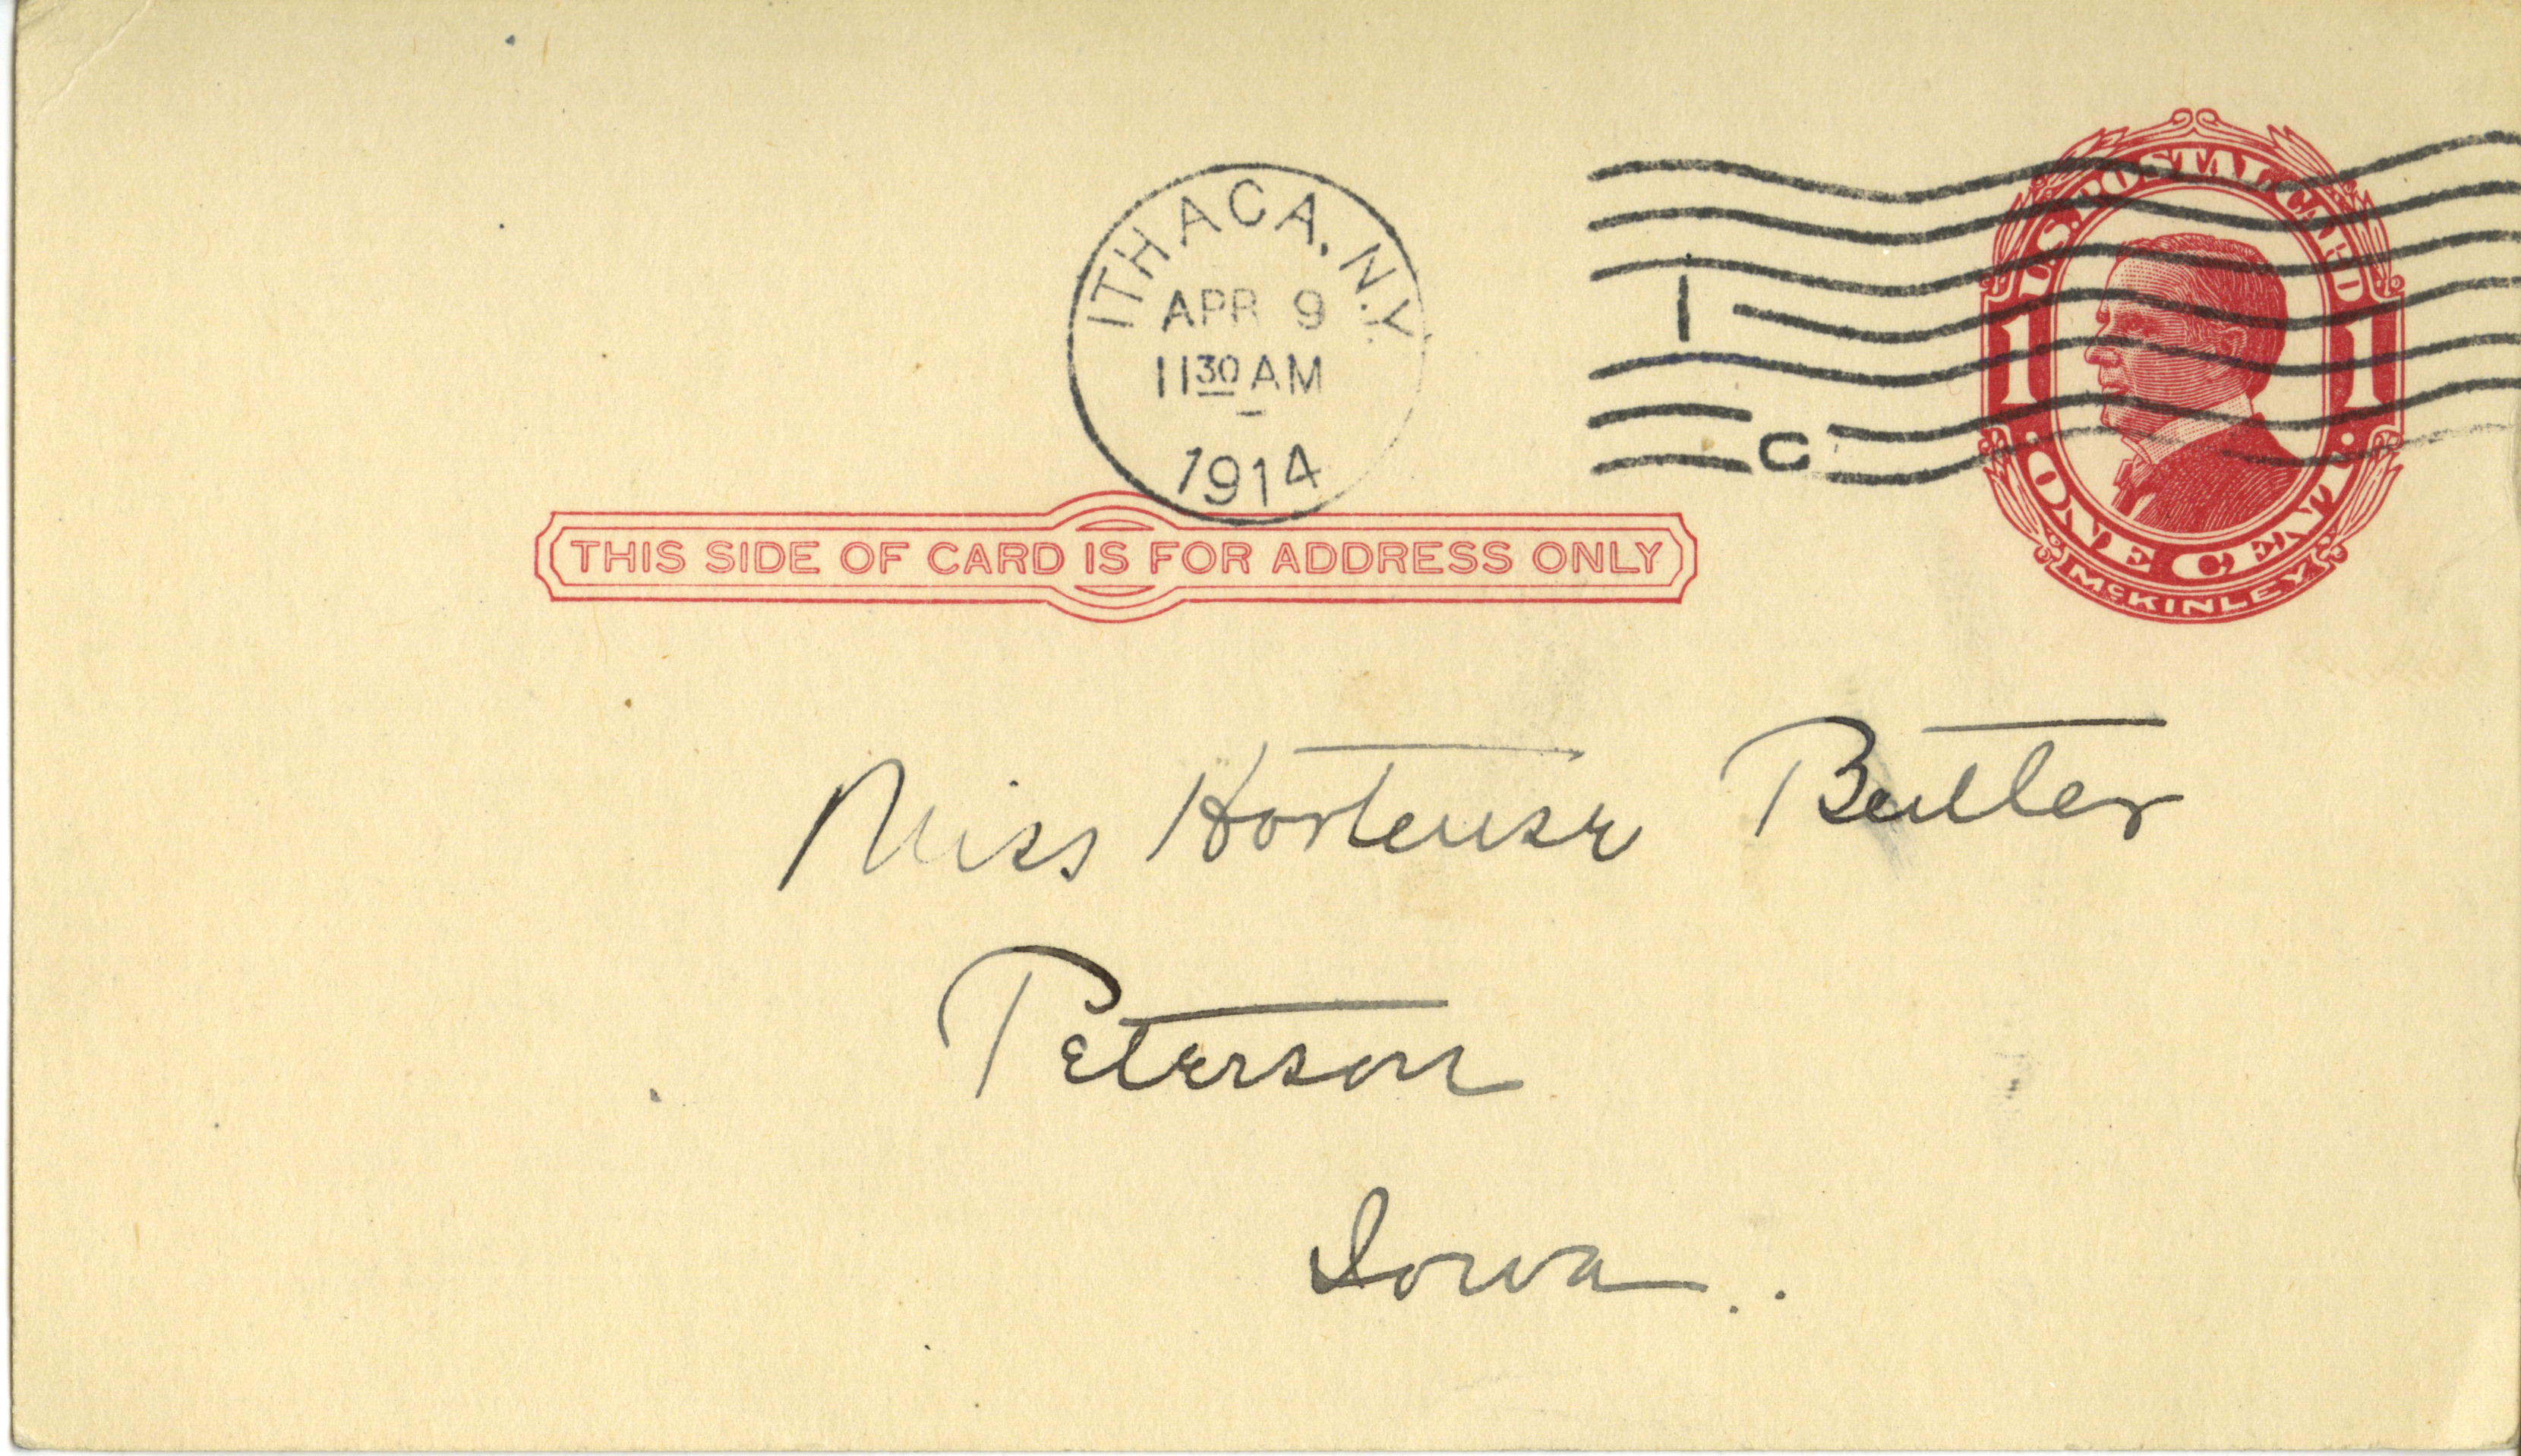 ITHACA, N.Y.
APR 9
11 30 AM
1914
1
C
U.S. POSTAL CARD
1 1
· ONE CENT ·
McKINLEY
THIS SIDE OF CARD IS FOR ADDRESS ONLY
Miss Hortense Butler
Peterson
Iowa..